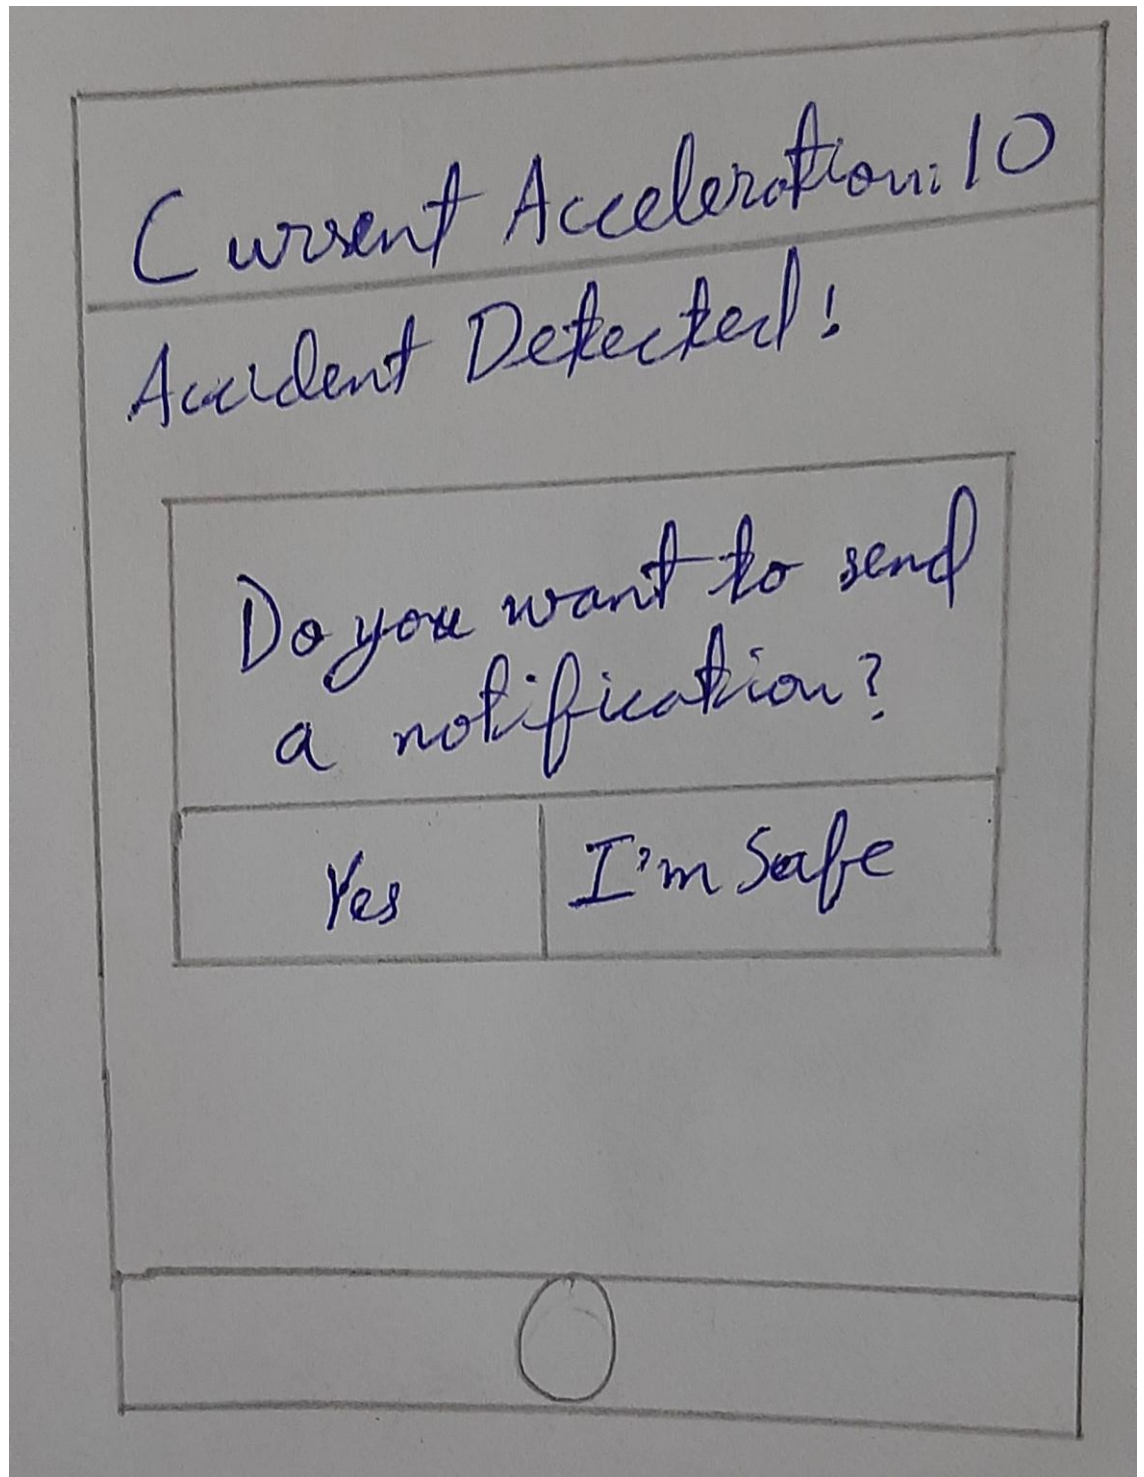 Current Acceleration: 10
Accident Detected!
Do you want to send
a notification?
Yes
I'm Safe